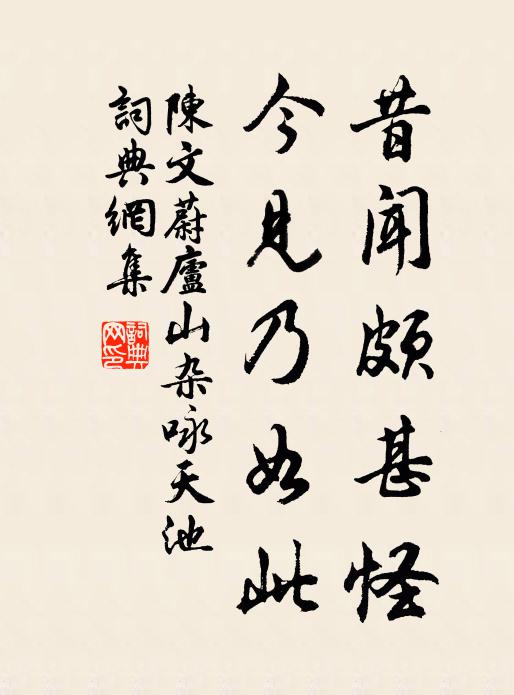 昔聞頗甚怪
今見乃如此
陳文蔚廬山杂咏天池
詞典網集
詞典網印